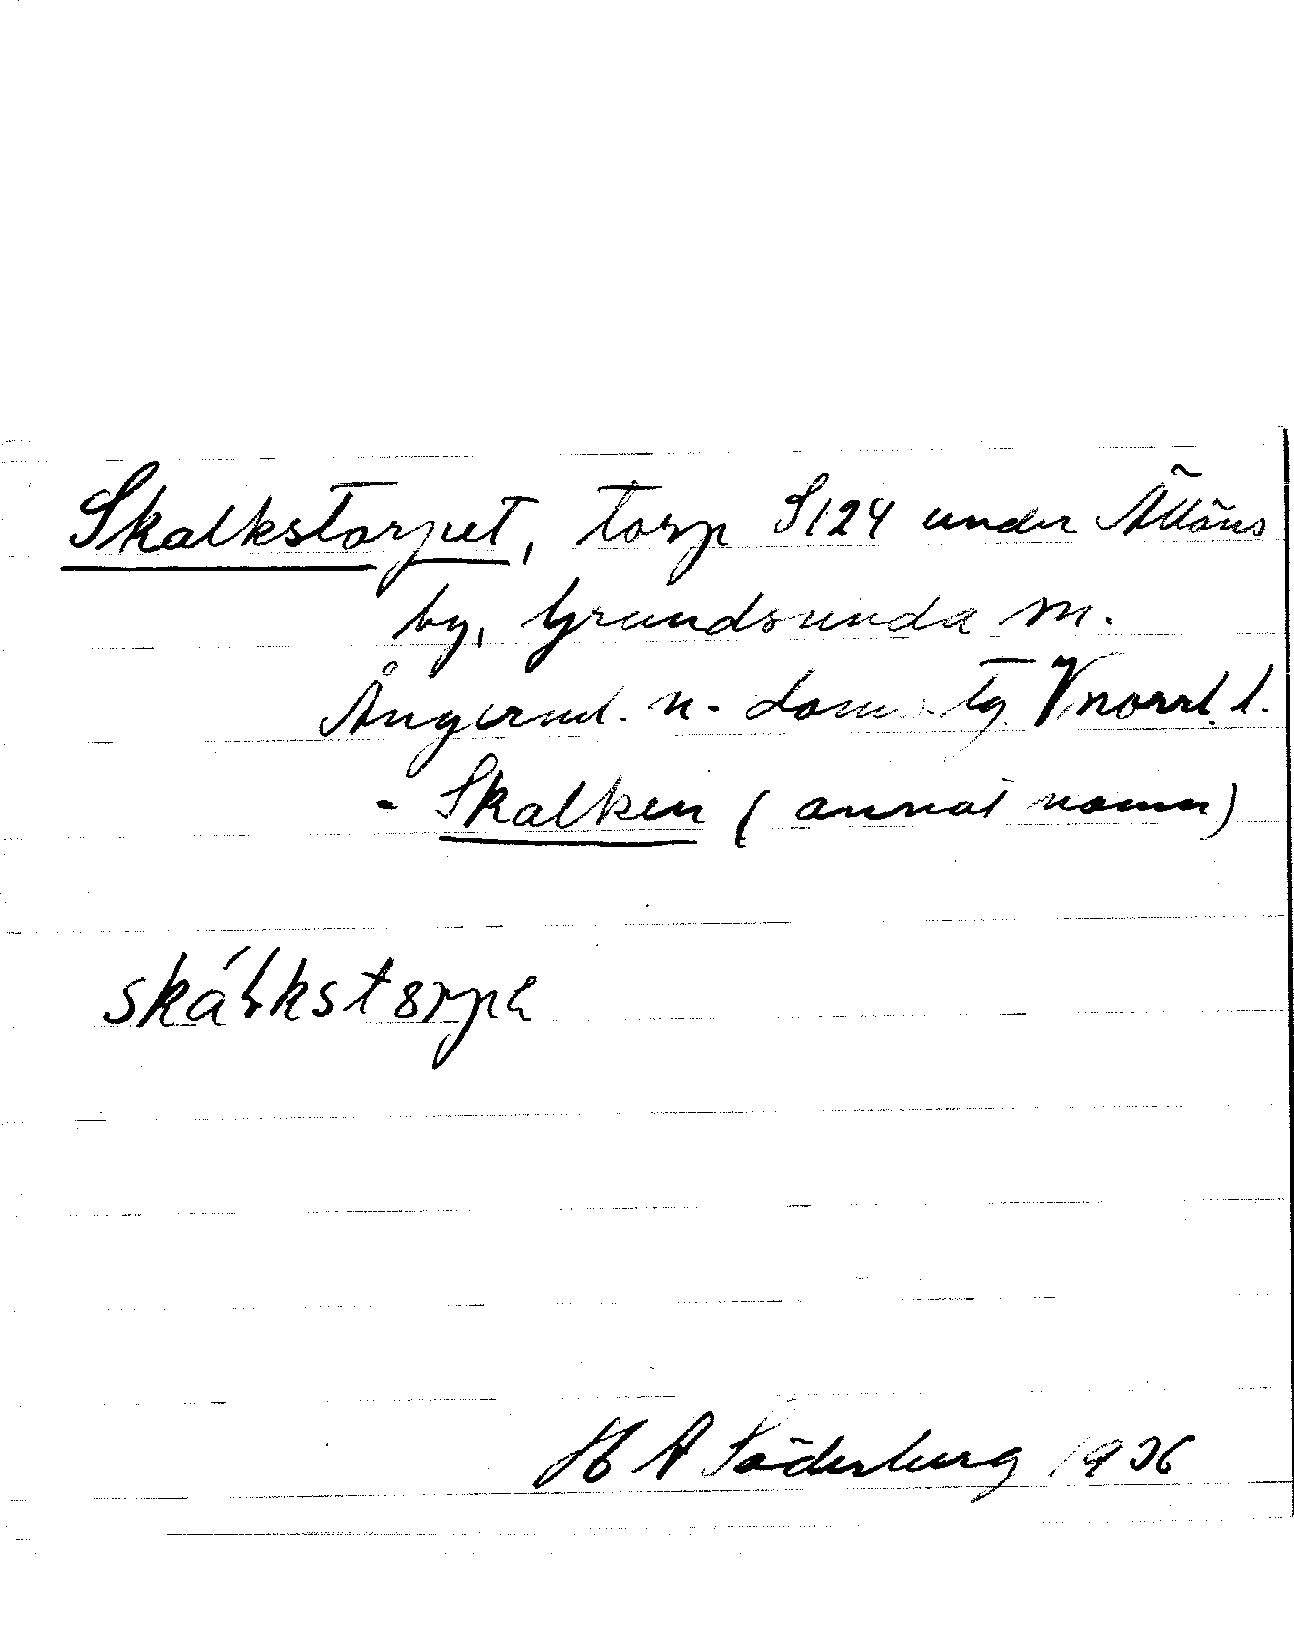 Skalkstorpet, torp S124 under Ällöns
by, Grundsunda sn.
Ångerml. n. doms. tg Vnorrl. l.
- Skalken (annat namn)
skálkstorpe
H A Söderberg 1936